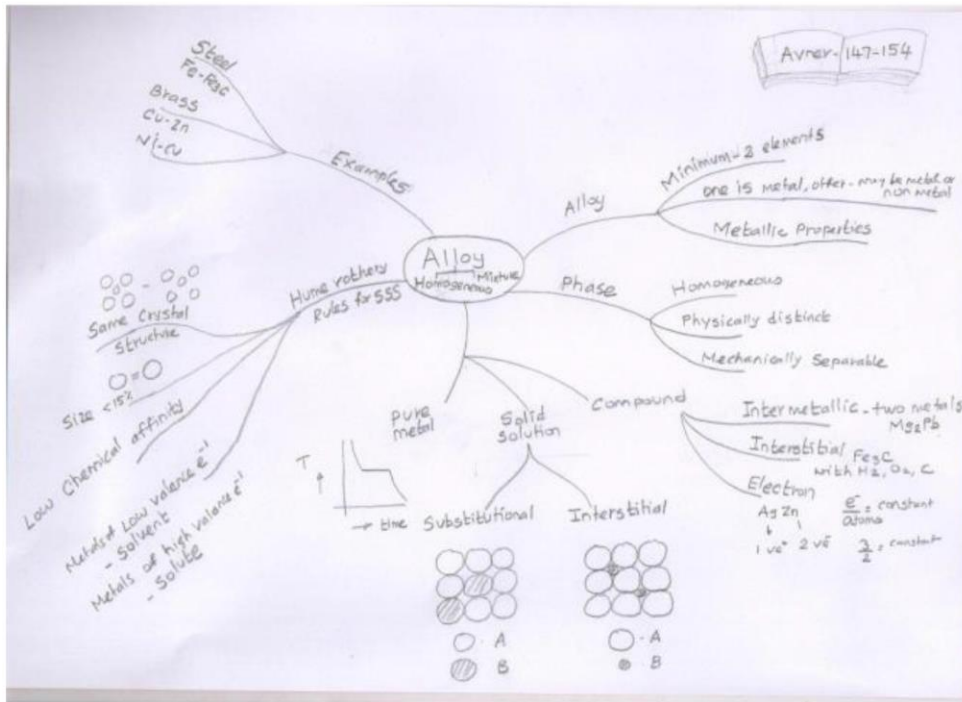 Avner-147-154
Steel
Fe-Fe3C
Brass
Cu-Zn
Ni-Cu
Examples
Alloy
Minimum-2 elements
one is metal, other- may be metal or
non metal
Metallic Properties
Alloy
Mixture
Homogeneous
Phase
Homogeneous
Physically distinct
Mechanically Separable
Hume rothery
Rules for SSS
Same Crystal
structure
Size <15%
Low Chemical affinity
Metals of Low valance e-1
- Solvent
Metals of high valance e-1
- Solute
Pure
metal
T
time
Solid
solution
Substitutional
A
B
Interstitial
A
B
Compound
Intermetallic - two metals
Mg2Pb
Interstitial Fe3C
with H2, O2, C
Electron
Ag Zn
1 ve- 2 ve-
e-/atoms = constant
3/2 = constant